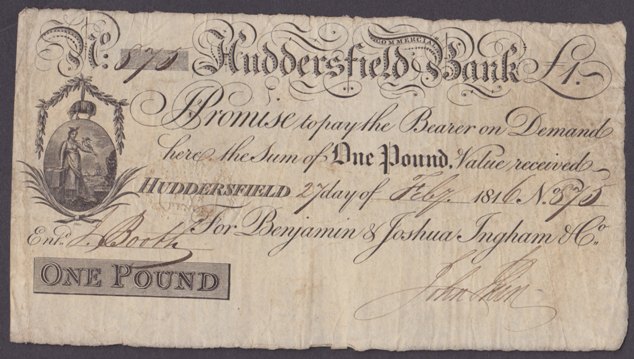 No. 875 Huddersfield COMMERCIAL Bank £1.
I Promise to pay the Bearer on Demand
here the Sum of One Pound, Value received
HUDDERSFIELD 27 day of Feby. 1816 No. 875
For Benjamin & Joshua Ingham & Co.
Entd. J. Booth
ONE POUND
John